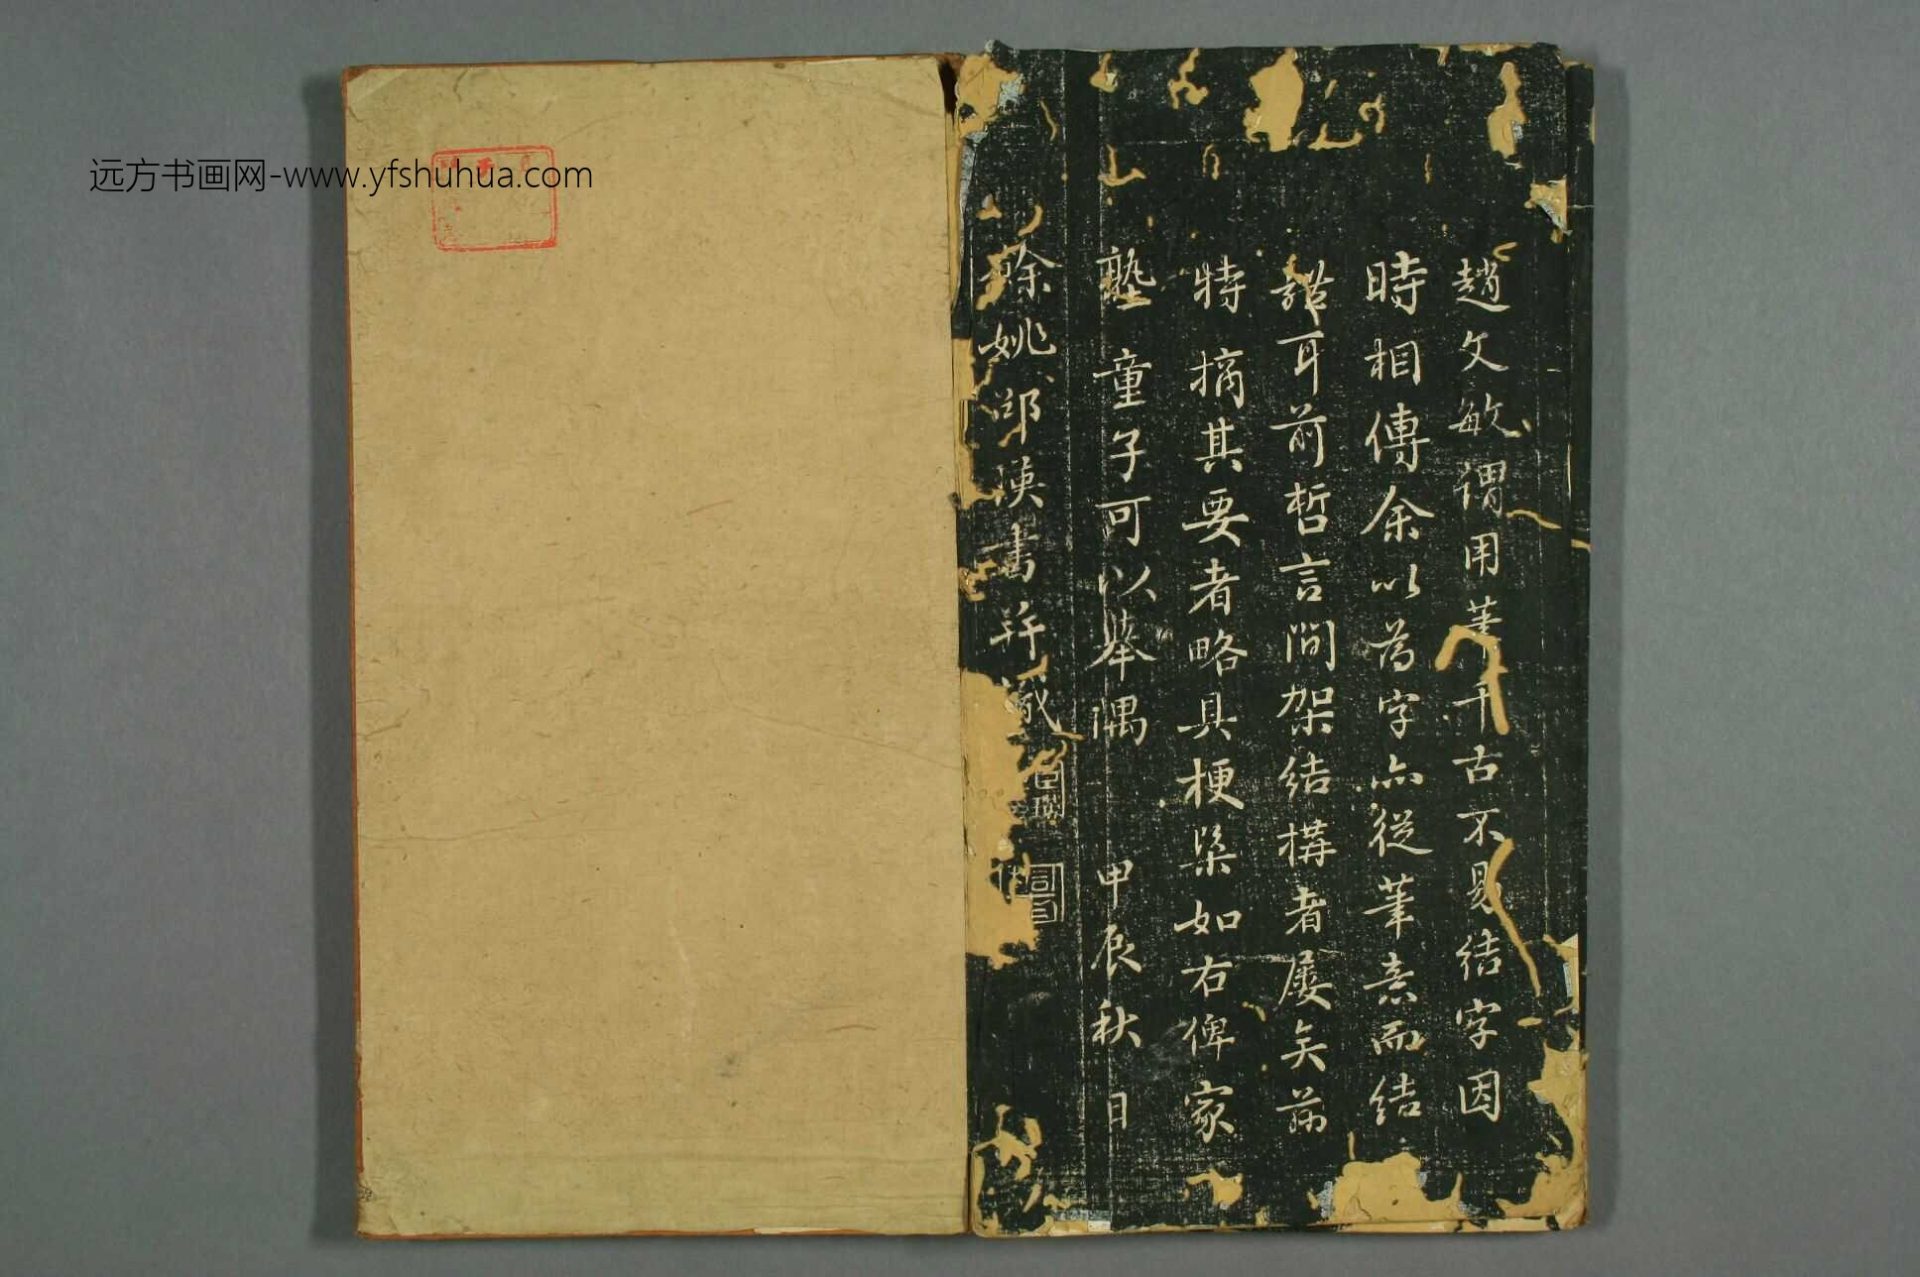 远方书画网-www.yfshuhua.com
趙文敏謂用筆千古不易結字因
時相傳余以為字亦從筆意而結
耳前哲言間架結構者屢矣茲
特摘其要者略具梗槩如右俾家
塾童子可以舉隅 甲辰秋日
餘姚邵瑛書并識